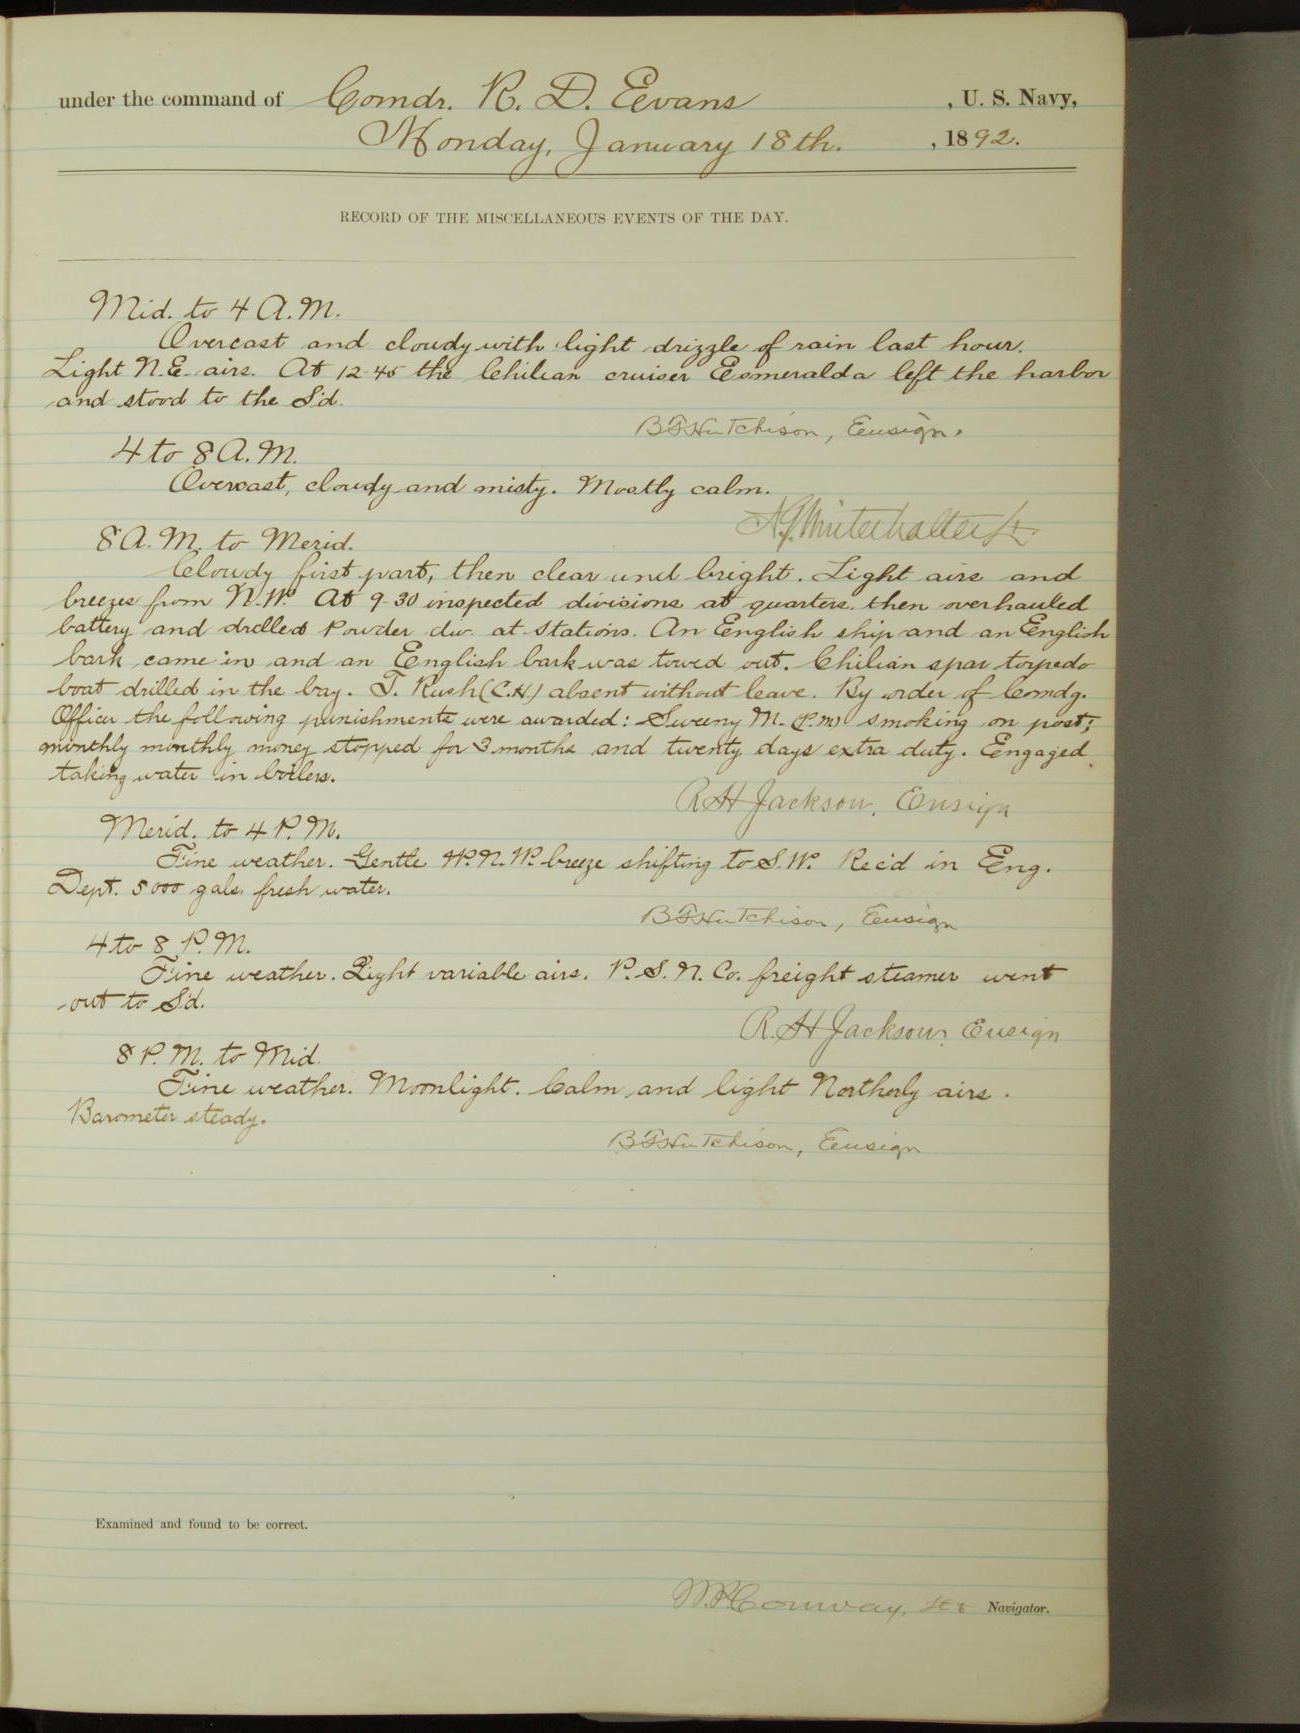 under the command of Comdr. R. D. Evans, U. S. Navy,
Monday, January 18th., 1892.
RECORD OF THE MISCELLANEOUS EVENTS OF THE DAY.
Mid. to 4 A.M.
Overcast and cloudy with light drizzle of rain last hour.
Light N.E. airs. At 12-45 the Chilean cruiser Esmeralda left the harbor
and stood to the S'd.
B F Hutchison, Ensign.
4 to 8 A.M.
Overcast, cloudy and misty. Mostly calm.
Winterhalter Lt.
8 A.M. to Merid.
Cloudy first part, then clear and bright. Light airs and
breezes from N.W. At 9-30 inspected divisions at quarters. then overhauled
battery and drilled Powder div. at stations. An English ship and an English
bark came in and an English bark was towed out. Chilian spar torpedo
boat drilled in the bay. T. Rush (C.H.) absent without leave. By order of Comdg.
Officer the following punishments were awarded: Sweeny M. (P.M) smoking on post;
monthly monthly money stopped for 3 months and twenty days extra duty. Engaged
taking water in boilers.
R H Jackson, Ensign
Merid. to 4 P.M.
Fine weather. Gentle W.N.W. breeze shifting to S.W. Rec'd in Eng.
Dept. 5000 gals. fresh water.
B F Hutchison, Ensign
4 to 8 P.M.
Fine weather. Light variable airs. P.S.N. Co. freight steamer went
out to S'd.
R. H Jackson, Ensign
8 P.M. to Mid.
Fine weather. Moonlight. Calm and light Northerly airs.
Barometer steady.
B F Hutchison, Ensign
Examined and found to be correct.
W. P. Conway, Navigator.